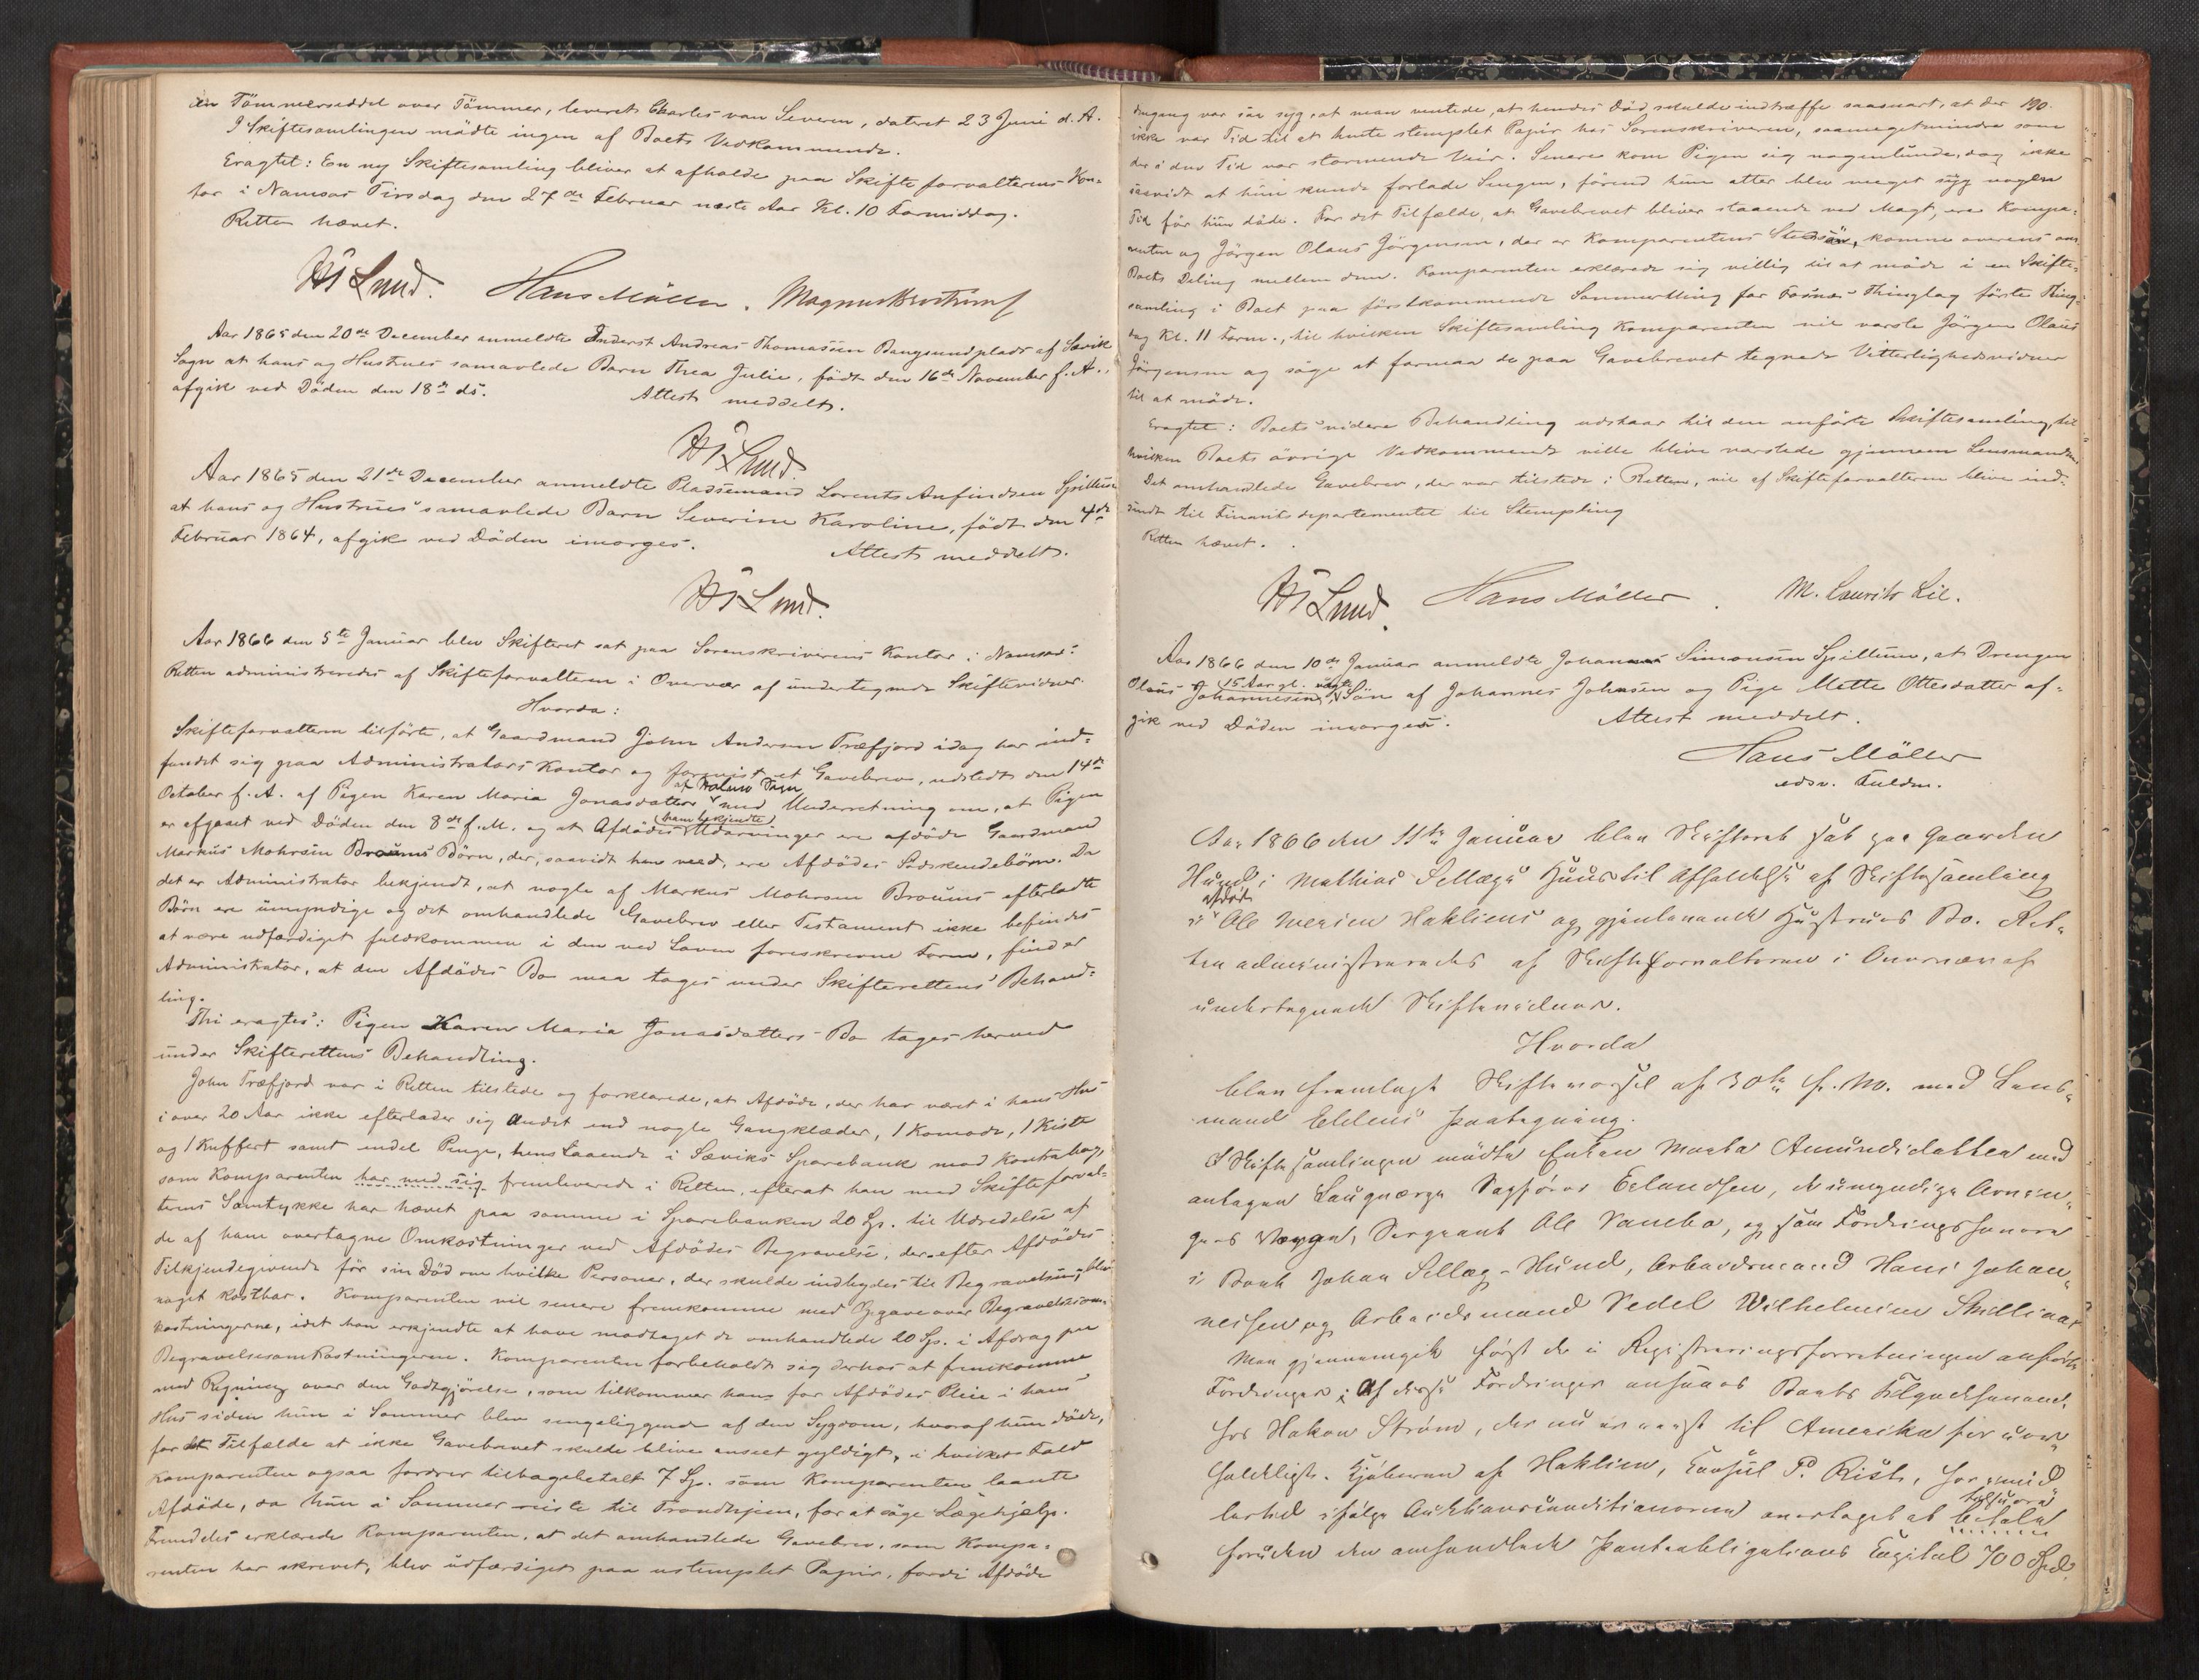 en Tömmerseddel over Tömmer, leveret Charles van Severen, dateret 23 Juni d. A.
I Skiftesamlingen mödte ingen af Boets Vedkommende.
Eragtet: En ny Skiftesamling bliver at afholde paa Skifteforvalterens Kon-
tor i Namsos Tirsdag den 27de Februar næste Aar Kl. 10 Formiddag.
Retten hævet.
Lund. Hans Möller.
Aar 1865 den 20de December anmeldte Inderst Andreas Thomassen Bangsundplads af Sævik
Sogn at hans og Hustrues samavlede Barn Thea Julie, födt den 16de November f. A.,
afgik ved Döden den 18de ds.
Attest meddelt.
Lund.
Aar 1865 den 21de December anmeldte Pladsemand Lorents Anfindsen Spillum
at hans og Hustrues samavlede Barn Severine Karoline, födt den 4de
Februar 1864, afgik ved Döden imorges.
Attest meddelt.
Lund.
Aar 1866 den 5te Januar blev Skifteret sat paa Sorenskriverens Kontor i Namsos.
Retten administreredes af Skifteforvalteren i Overvær af undertegnede Skiftevidner.
Hvorda:
Skifteforvalteren tilförte, at Gaardmand John Andersen Træfjord idag har ind-
fundet sig paa Administrators Kontor og forevist et Gavebrev, udstedt den 14de
af Sogn
October f. A. af Pigen Karen Maria Jonasdatter med Underretning om, at Pigen
(ham bekjendte)
er afgaaet ved Döden den 8de f. M. og at Afdödes Udarvinger ere afdöde Gaardmand
Markus Mohrsen Brouns Börn, der, saavidt han veed, ere Afdödes Södskendebörn. Da
det er Administrator bekjendt, at nogle af Markus Mohrsen Brouns efterladte
Börn ere umyndige og det omhandlede Gavebrev eller Testament ikke befindes
at være udfærdiget fuldkommen i den ved Loven foreskrevne Form, finder
Administrator, at den Afdödes Bo maa tages under Skifterettens Behand-
ling.
Thi eragtes: Pigen Karen Maria Jonasdatters Bo tages herved
under Skifterettens Behandling.
John Træfjord var i Retten tilstede og forklarede, at Afdöde, der har været i hans Hus
i over 20 Aar ikke efterlader sig andet end nogle Gangklæder, 1 Komode, 1 Kiste
og 1 Kuffert samt endel Penge, henstaaende i Sæviks Sparebank mod Kontrabog,
som Komparenten har med sig fremleverede i Retten, efterat han med Skifteforval-
terens Samtykke har hævet paa samme i Sparebanken 20 Sp. til Udredelse af
de af ham overtagne Omkostninger ved Afdödes Begravelse, der efter Afdödes
Tilkjendegivende för sin Död om hvilke Personer, der skulde indbydes til Begravelsen, blev
noget kostbar. Komparenten vil senere fremkomme med Opgave over Begravelsesom-
kostningerne, idet han erkjendte at have modtaget de omhandlede 20 Sp. i Afdrag paa
Begravelsesomkostningerne. Komparenten forbeholdt sig derhos at fremkomme
med Regning over den Godtgjörelse, som tilkommer ham for Afdödes Pleie i hans
Hus siden hun i Sommer blev sengeliggende af den Sygdom, hvoraf hun döde,
for det Tilfælde at ikke Gavebrevet skulde blive anseet gyldigt, i hvilket Fald
Komparenten ogsaa fordrer tilbagebetalt 7 Sp. som Komparenten laante
Afdöde, da hun i Sommer reiste til Trondhjem, for at söge Lægehjelp.
Fremdeles erklærede Komparenten, at det omhandlede Gavebrev, som Kompa-
renten har skrevet, blev udfærdiget paa ustemplet Papir, fordi Afdöde
190.
dengang var saa syg, at man ventede, at hendes Död skulde indtræffe saasnart, at der
ikke var Tid til at hente stemplet Papir hos Sorenskriveren, saameget mindre som
der i den Tid var stormende Veir. Senere kom Pigen sig nogenlunde, dog ikke
saavidt at hun kunde forlade Sengen, förend hun atter blev meget syg nogen
Tid för hun döde. For det Tilfælde, at Gavebrevet bliver staaende ved Magt, ere Kompa-
renten og Jörgen Olaus Jörgensen, der er Komparentens Stedsön, komne overens om
Boets Deling mellem dem. Komparenten erklærede sig villig til at möde i en Skifte-
samling i Boet paa förstkommende Sommerthing for Fosnæs Thinglag förste Thing-
dag Kl. 11 Form., til hvilken Skiftesamling Komparenten vil varsle Jörgen Olaus
Jörgensen og söge at formaa de paa Gavebrevet tegnede Vitterlighedsvidner
til at möde.
Eragtet: Boets videre Behandling udstaar til den anförte Skiftesamling, til
hvilken Boets övrige Vedkommende ville blive varslede gjennem Lensmanden.
Det omhandlede Gavebrev, der var tilstede i Retten, vil af Skifteforvalteren blive ind-
sendt til Finantsdepartementet til Stempling
Retten hævet.
Lund. Hans Möller. M. Laurits Lie.
Aar 1866 den 10de Januar anmeldte Johannes Simonsen Spillum, at Drengen
15 Aar gl. uægte
Olaus Johannesen, Sön af Johannes Johnsen og Pige Mette Ottesdatter af-
gik ved Döden imorges.
Attest meddelt.
Hans Möller
edsv. Fuldm.
Aar 1866 den 11te Januar blev Skifteret sat paa Gaarden
Hund i Mathias Sellægs Huus til Afholdelse af Skiftesamling
afdöde
i Ole Iversen Hakliens og gjenlevende Hustrues Bo. Ret-
ten administreredes af Skifteforvalteren i Overvær af
undertegnede Skiftevidner.
Hvorda
blev fremlagt Skiftevarsel af 30te f. M. med Lens-
mand Eldens Paategning.
I Skiftesamlingen mödte Enken Marta Amundsdatter med
antagen Laugværge Sagförer Erlandsen, de umyndige Arvin-
gers Værge, Sergeant Ole Vandba, og som Fordringshavere
i Boet Johan Sellæg-Hund, Arbeidsmand Hans Johan-
nessen og Arbeidsmand Sedel Wilhelmsen Skillinaas
Man gjennemgik först de i Registreringsforretningen anförte
Fordringer; Af disse Fordringer ansaaes Boets Tilgodehavende
hos Hakon Ström, der nu er reist til Amerika for uer-
holdeligt. Kjöberen af Haklien, Consul P. Rist, har imid-
tilsvare
lertid ifölge Auktionsconditionerne overtaget at betale
foruden den omhandlede Panteobligations Capital 700 Spd.